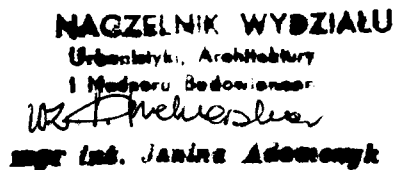 NACZELNIK WYDZIAŁU
Urbanistyki, Architektury
i Nadzoru Budowlanego
wz
mgr inż. Janina Adamczyk